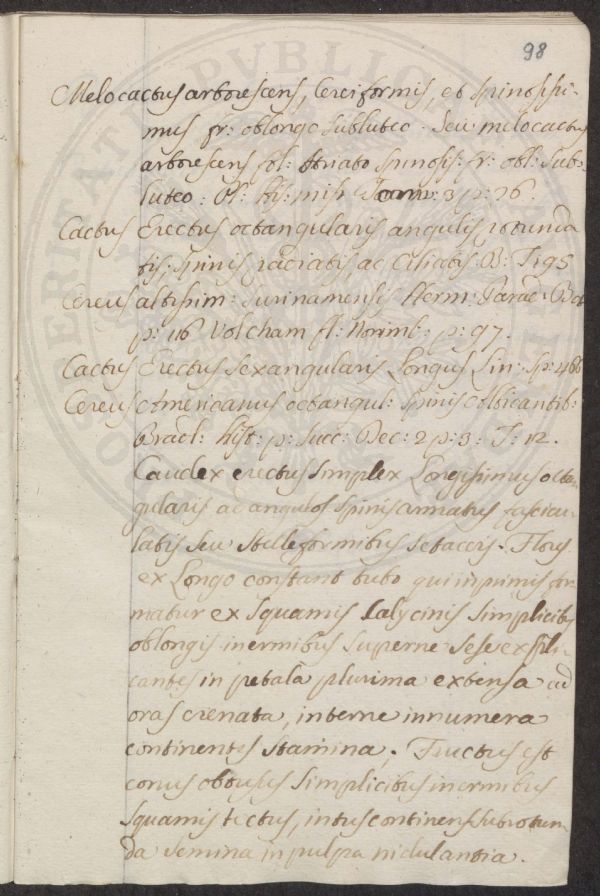 98
Melocactus arborescens, Cereiformis, et spinosissi-
mus fr: oblongo subluteo. Seu melocactus
arborescens fol: striato spinosis: fr: obl: sub-
luteo: Pl: His: miss: 3 p: 26.
Cactus Erectus octangularis angulis rotunda
tis, spinis radiatis ac Ciliatis B: T: 95
Cereus altissim: Surinamensis Herm: Parad: Bat
p: 116 Volcham fl: Norimb: p: 97.
Cactus Erectus Sexangularis Longus Lin: Sp: 466
Cereus Americanus octangul: spinis albicantib:
Bradl: Hist: p: Succ: Dec: 2 p: 3: T: 12.
Caudex erectus simplex Longissimus octan
gularis ad angulos spinis armatus fascicu
latis seu Stelleformibus setaceis. Flores
ex Longo constant tubo qui in primis for
matur ex squamis Calycinis simplicibus
oblongis inermibus superne sese expli-
cantes in petala plurima extensa ad
oras crenata, interne innumera
continentes stamina. Fructus est
conus obtusus simplicibus inermibus
squamis tectus, intus continens subrotun-
da semina in pulpa nidulantia.